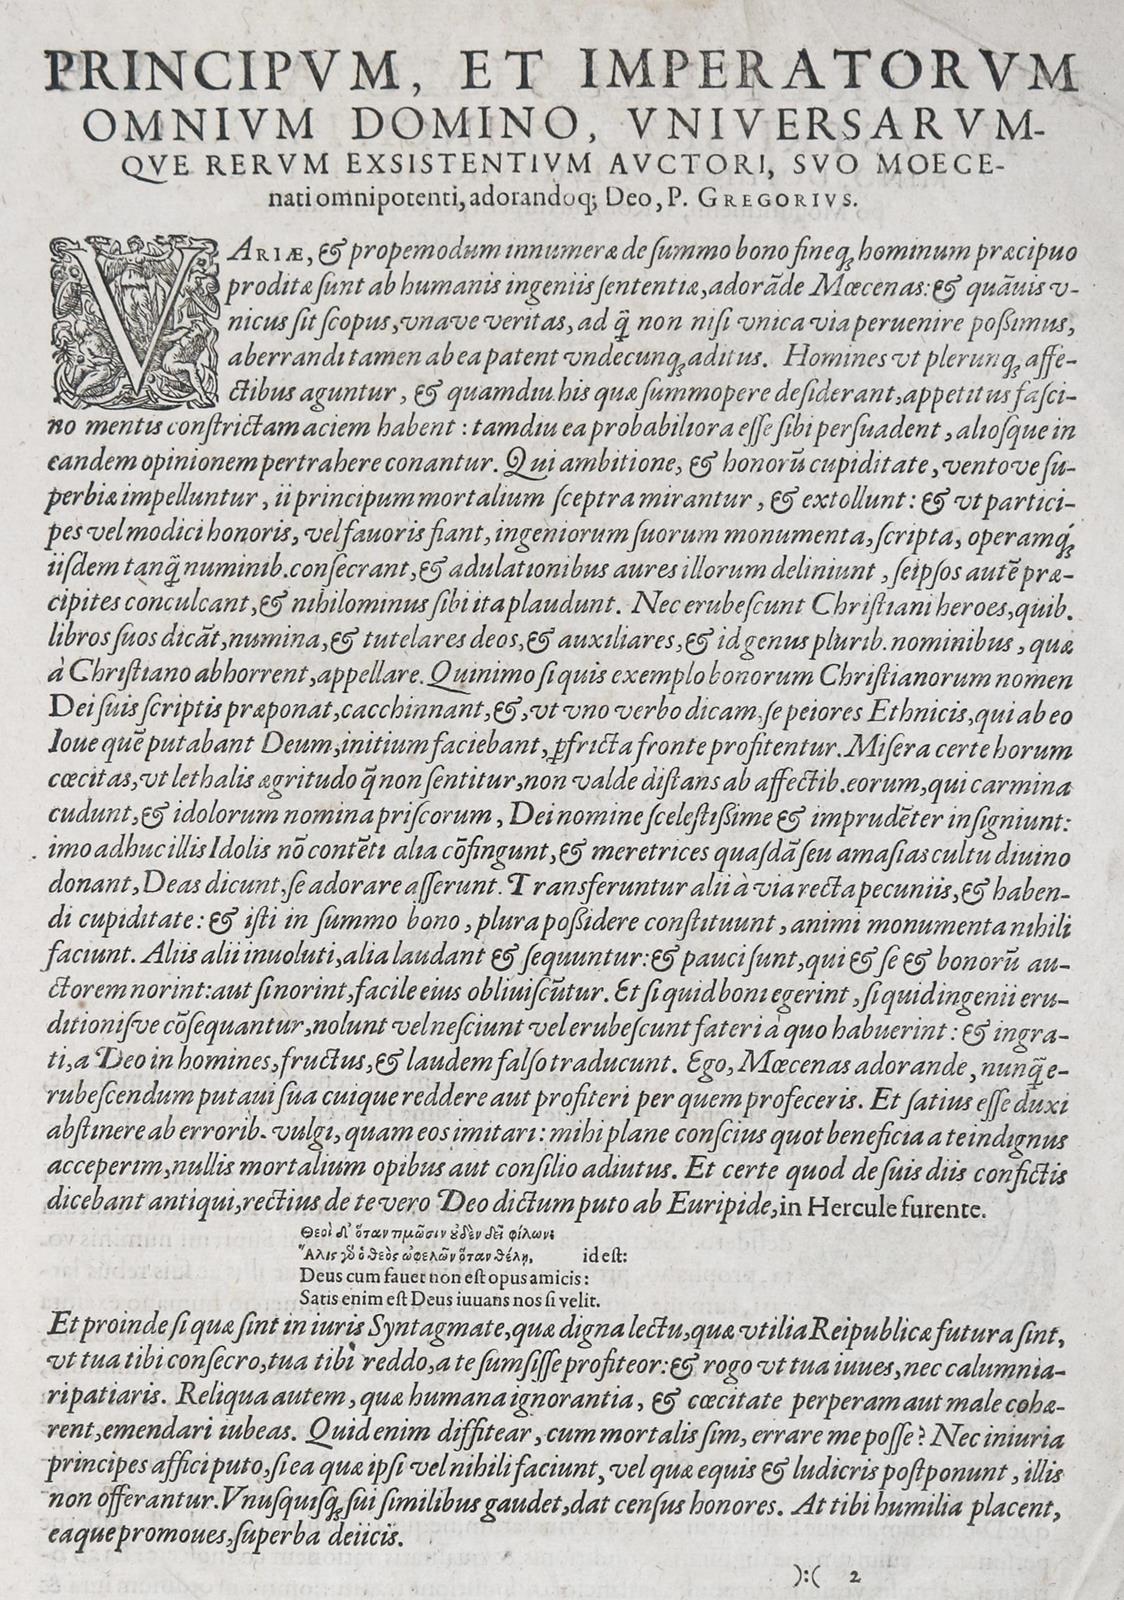 PRINCIPVM, ET IMPERATORVM
OMNIVM DOMINO, VNIVERSARVM-
QVE RERVM EXSISTENTIVM AVCTORI, SVO MOECE-
nati omnipotenti, adorandoq; Deo, P. GREGORIVS.
VARIÆ, & propemodum innumeræ de ſummo bono fineq; hominum præcipuo
proditæ ſunt ab humanis ingeniis ſententiæ, adorāde Mœcenas: & quāuis v-
nicus ſit ſcopus, vnave veritas, ad q̃ non niſi vnica via peruenire poßimus,
aberrandi tamen ab ea patent vndecunq; aditus. Homines vt plerunq; affe-
ctibus aguntur, & quamdiu his quæ ſummopere deſiderant, appetitus faſci-
no mentis conſtrictam aciem habent: tamdiu ea probabiliora eſſe ſibi perſuadent, alioſque in
eandem opinionem pertrahere conantur. Qui ambitione, & honorū cupiditate, ventove ſu-
perbiæ impelluntur, ii principum mortalium ſceptra mirantur, & extollunt: & vt partici-
pes vel modici honoris, vel fauoris fiant, ingeniorum ſuorum monumenta, ſcripta, operamq́;
iiſdem tanq̃ numinib. conſecrant, & adulationibus aures illorum deliniunt, ſeipſos autē præ-
cipites conculcant, & nihilominus ſibi ita plaudunt. Nec erubeſcunt Chriſtiani heroes, quib.
libros ſuos dicāt, numina, & tutelares deos, & auxiliares, & id genus plurib. nominibus, quæ
à Chriſtiano abhorrent, appellare. Quinimo ſi quis exemplo bonorum Chriſtianorum nomen
Dei ſuis ſcriptis præponat, cacchinnant, &, vt vno verbo dicam, ſe peiores Ethnicis, qui ab eo
Ioue quē putabant Deum, initium faciebant, ꝑfricta fronte profitentur. Miſera certe horum
cœcitas, vt lethalis ægritudo q̃ non ſentitur, non valde diſtans ab affectib. eorum, qui carmina
cudunt, & idolorum nomina priſcorum, Dei nomine ſceleſtißime & imprudēter inſigniunt:
imo adhuc illis Idolis nō contēti alia cōfingunt, & meretrices quaſdā ſeu amaſias cultu diuino
donant, Deas dicunt, ſe adorare aſſerunt. Transferuntur alii à via recta pecuniis, & haben-
di cupiditate: & iſti in ſummo bono, plura poßidere conſtituunt, animi monumenta nihili
faciunt. Aliis alii inuoluti, alia laudant & ſequuntur: & pauci ſunt, qui & ſe & bonorū au-
ctorem norint: aut ſi norint, facile eius obliuiſcūtur. Et ſi quid boni egerint, ſi quid ingenii eru-
ditioniſve cōſequantur, nolunt vel neſciunt vel erubeſcunt fateri à quo habuerint: & ingra-
ti, a Deo in homines, fructus, & laudem falſo traducunt. Ego, Mœcenas adorande, nunq̃ e-
rubeſcendum putaui ſua cuique reddere aut profiteri per quem profeceris. Et ſatius eſſe duxi
abſtinere ab errorib. vulgi, quam eos imitari: mihi plane conſcius quot beneficia a te indignus
acceperim, nullis mortalium opibus aut conſilio adiutus. Et certe quod de ſuis diis confictis
dicebant antiqui, rectius de te vero Deo dictum puto ab Euripide, in Hercule furente.
Θεοὶ δ' ὅταν τιμῶσιν ȣ̓δὲν δεῖ φίλων:
Ἅλις γὸ ὁ θεὸς ὠφελῶν ὅταν θέλῃ, id eſt:
Deus cum fauet non eſt opus amicis:
Satis enim eſt Deus iuuans nos ſi velit.
Et proinde ſi quæ ſint in iuris Syntagmate, quæ digna lectu, quæ vtilia Reipublicæ futura ſint,
vt tua tibi conſecro, tua tibi reddo, a te ſumſiſſe profiteor: & rogo vt tua iuues, nec calumnia-
ri patiaris. Reliqua autem, quæ humana ignorantia, & cœcitate perperam aut male cohæ-
rent, emendari iubeas. Quid enim diffitear, cum mortalis ſim, errare me poſſe? Nec iniuria
principes affici puto, ſi ea quæ ipſi vel nihili faciunt, vel quæ equis & ludicris poſtponunt, illis
non offerantur. Vnuſquiſq; ſui ſimilibus gaudet, dat cenſus honores. At tibi humilia placent,
eaque promoues, ſuperba deiicis.
):( 2